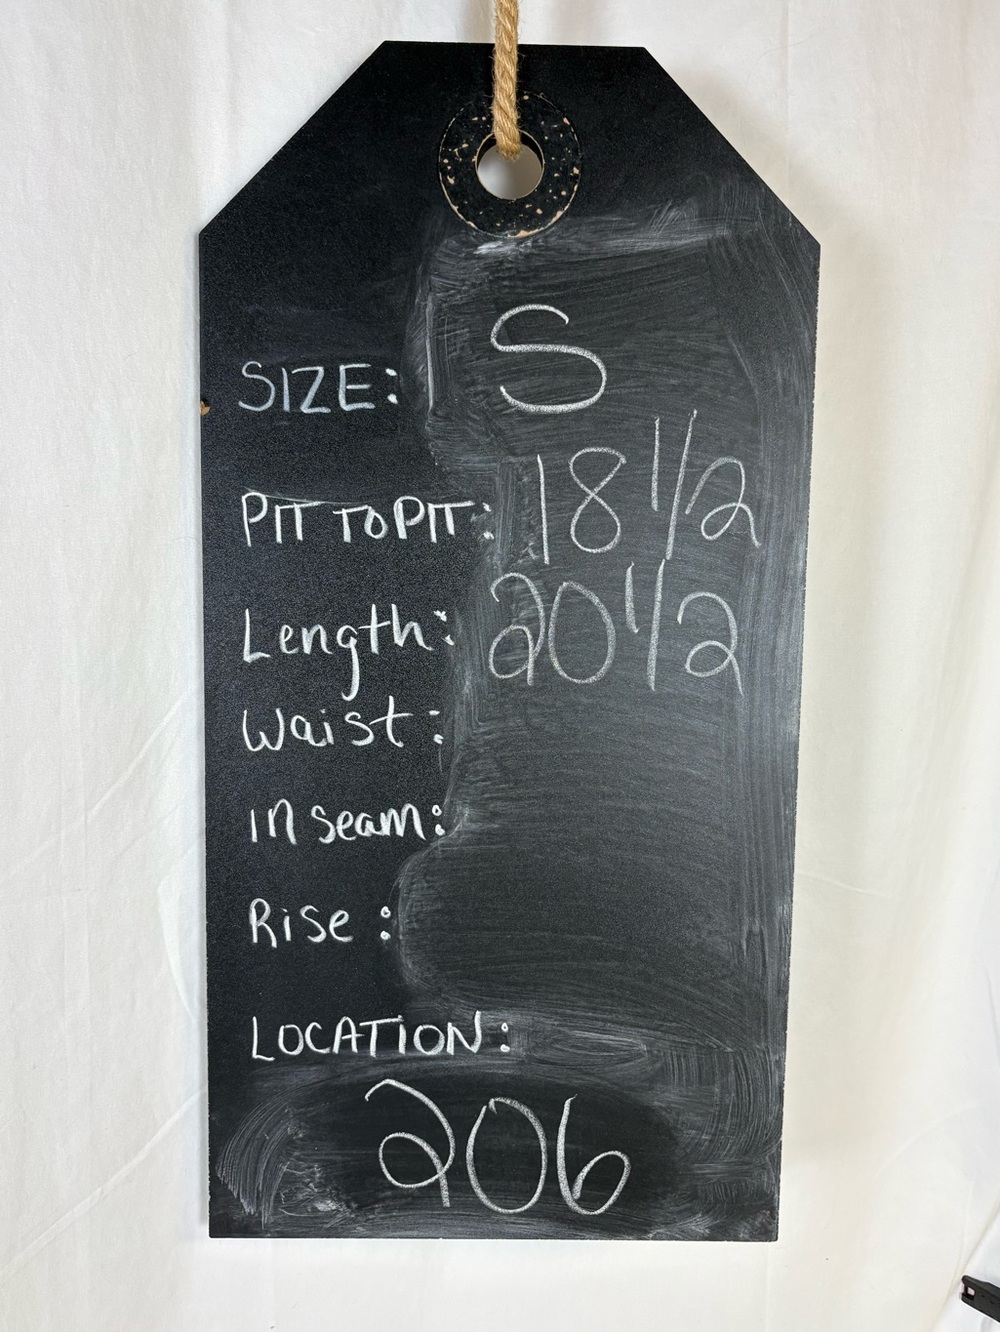 SIZE: S
PIT TO PIT: 18 1/2
Length: 20 1/2
Waist:
inseam:
Rise:
LOCATION:
206